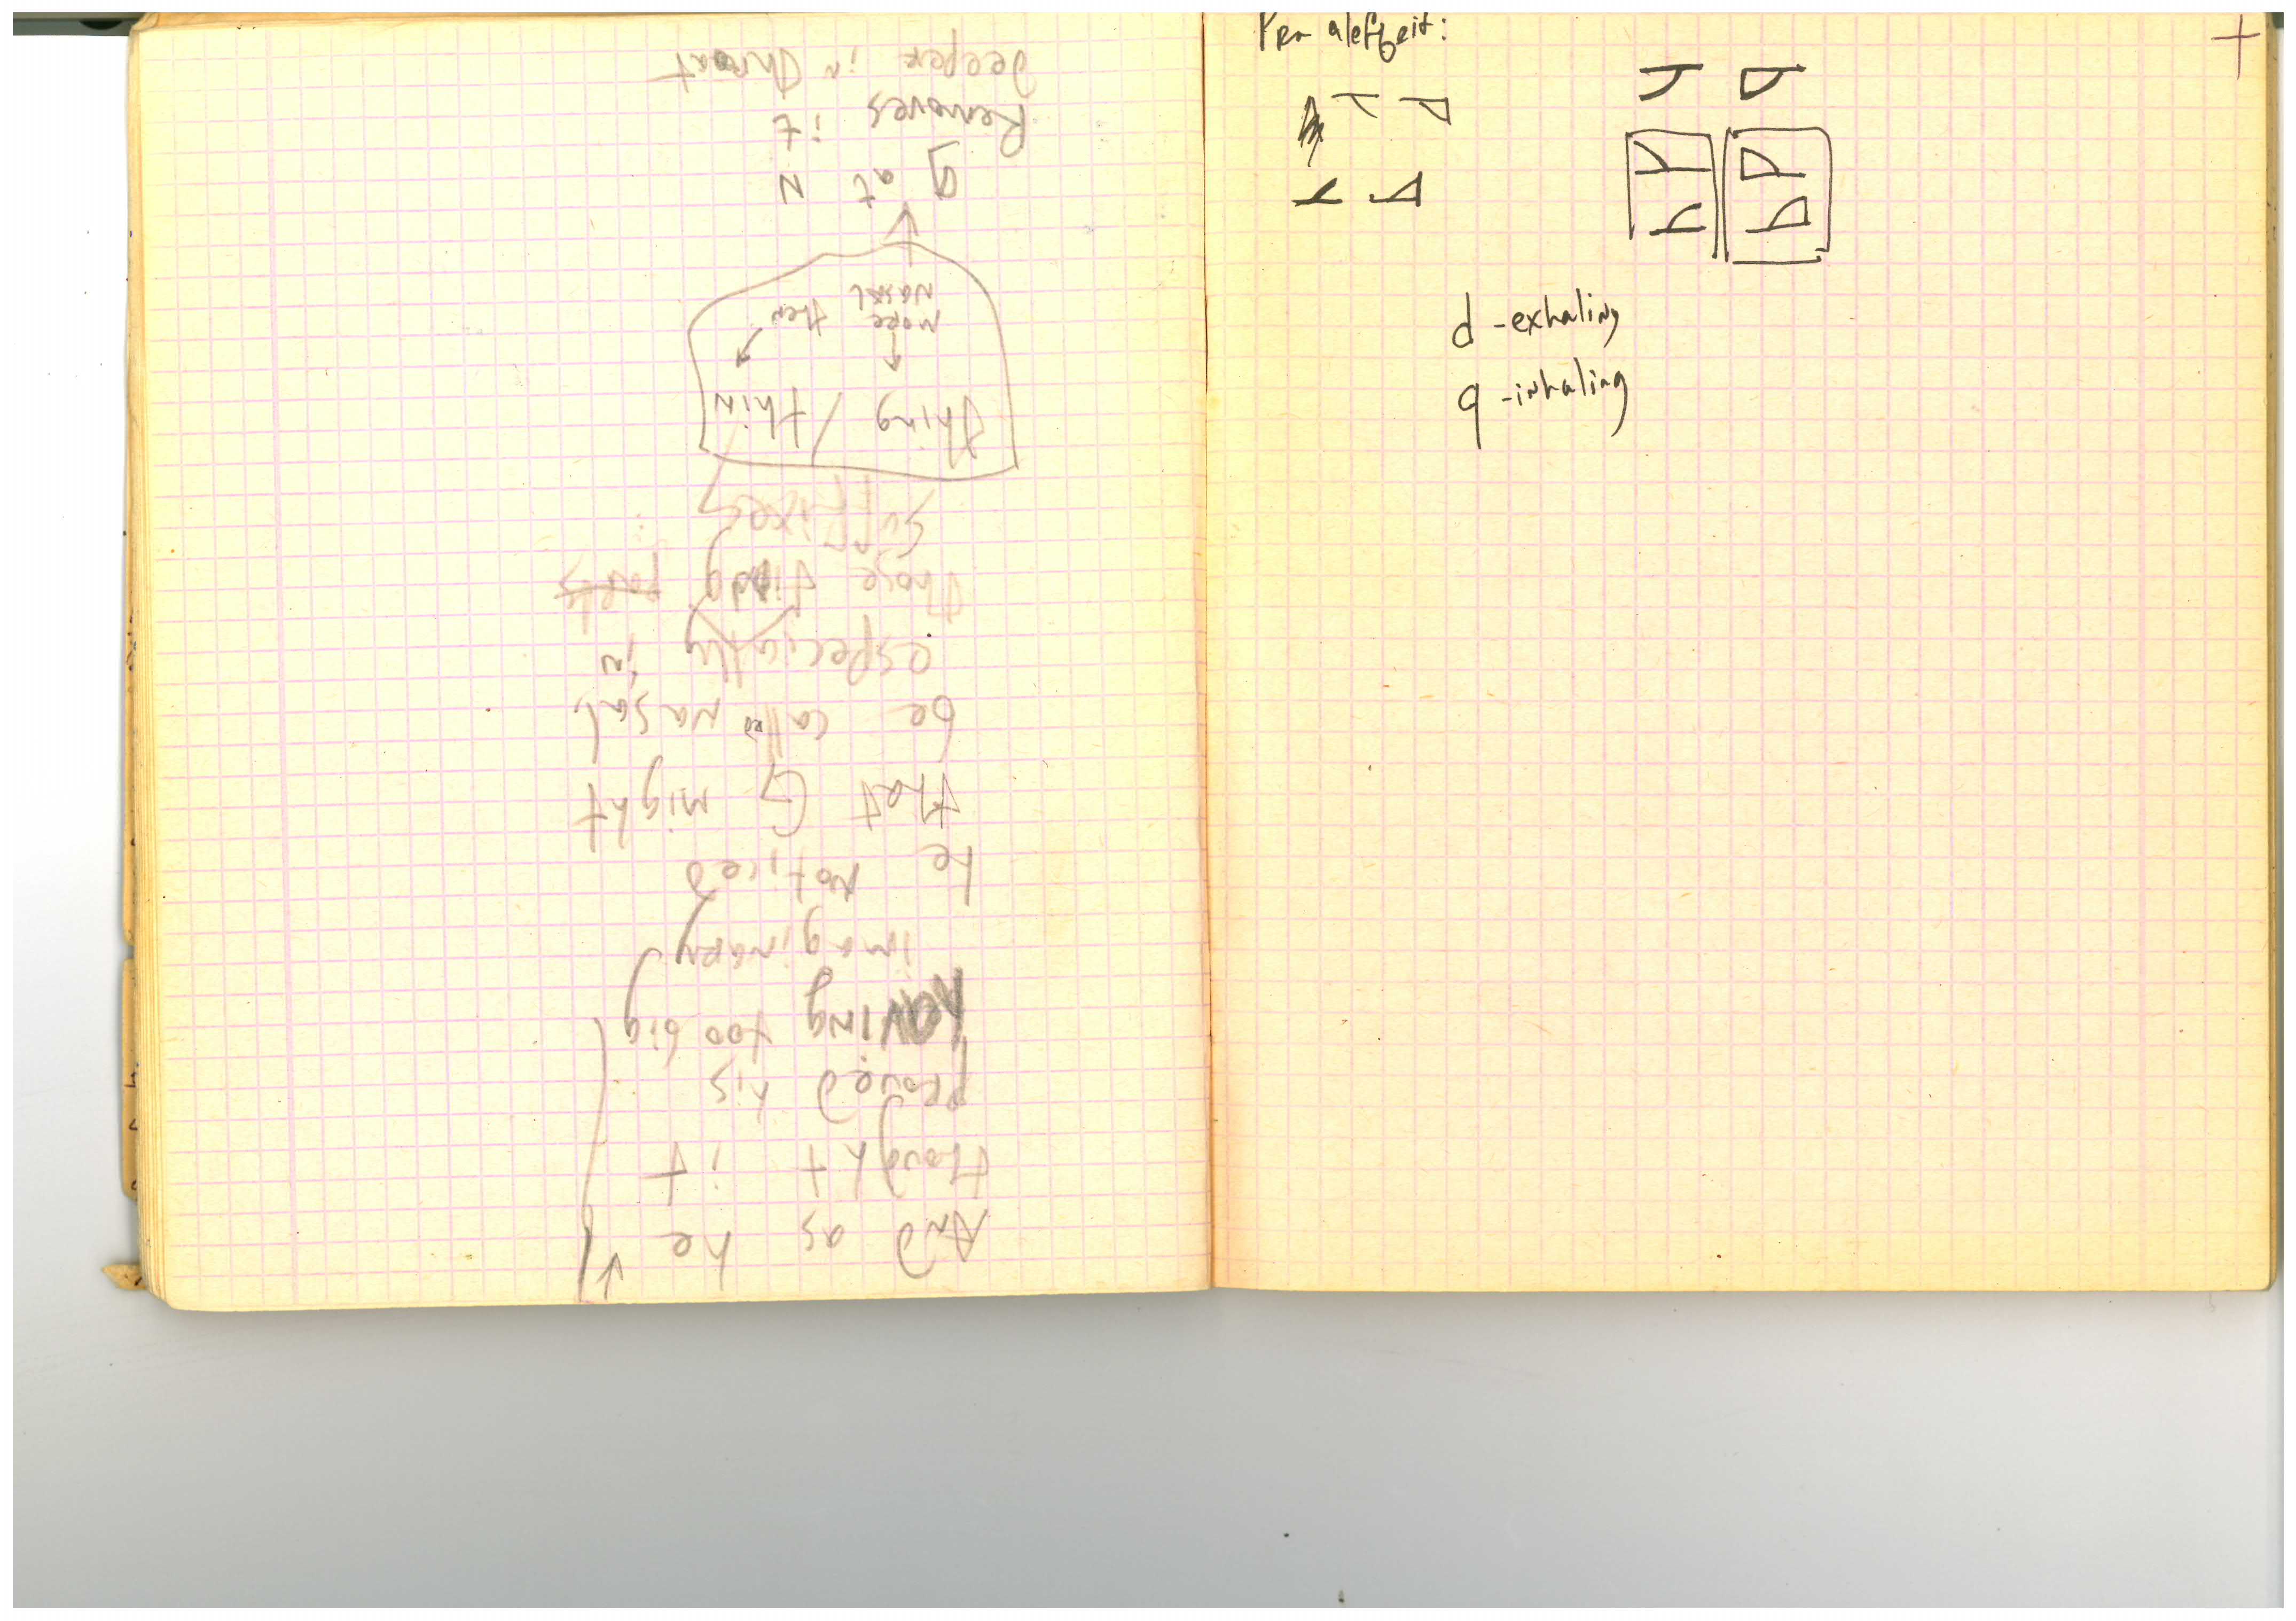 And as he
thought it
proved his
having too big
imaginary
he noticed
that G might
be called nasal,
especially in
those
suffixes
thing / thin
more then
nasal
g at N
Removes it
deeper in throat
Per alefbeit:
d - exhaling
q - inhaling